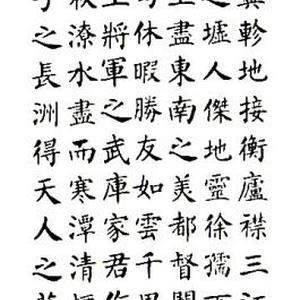 翼軫地接衡廬襟三江
之墟人傑地靈徐孺下
主盡東南之美都督閻
旬休暇勝友如雲千里
王將軍之武庫家君作
秋潦水盡而寒潭清煙
子之長洲得天人之舊